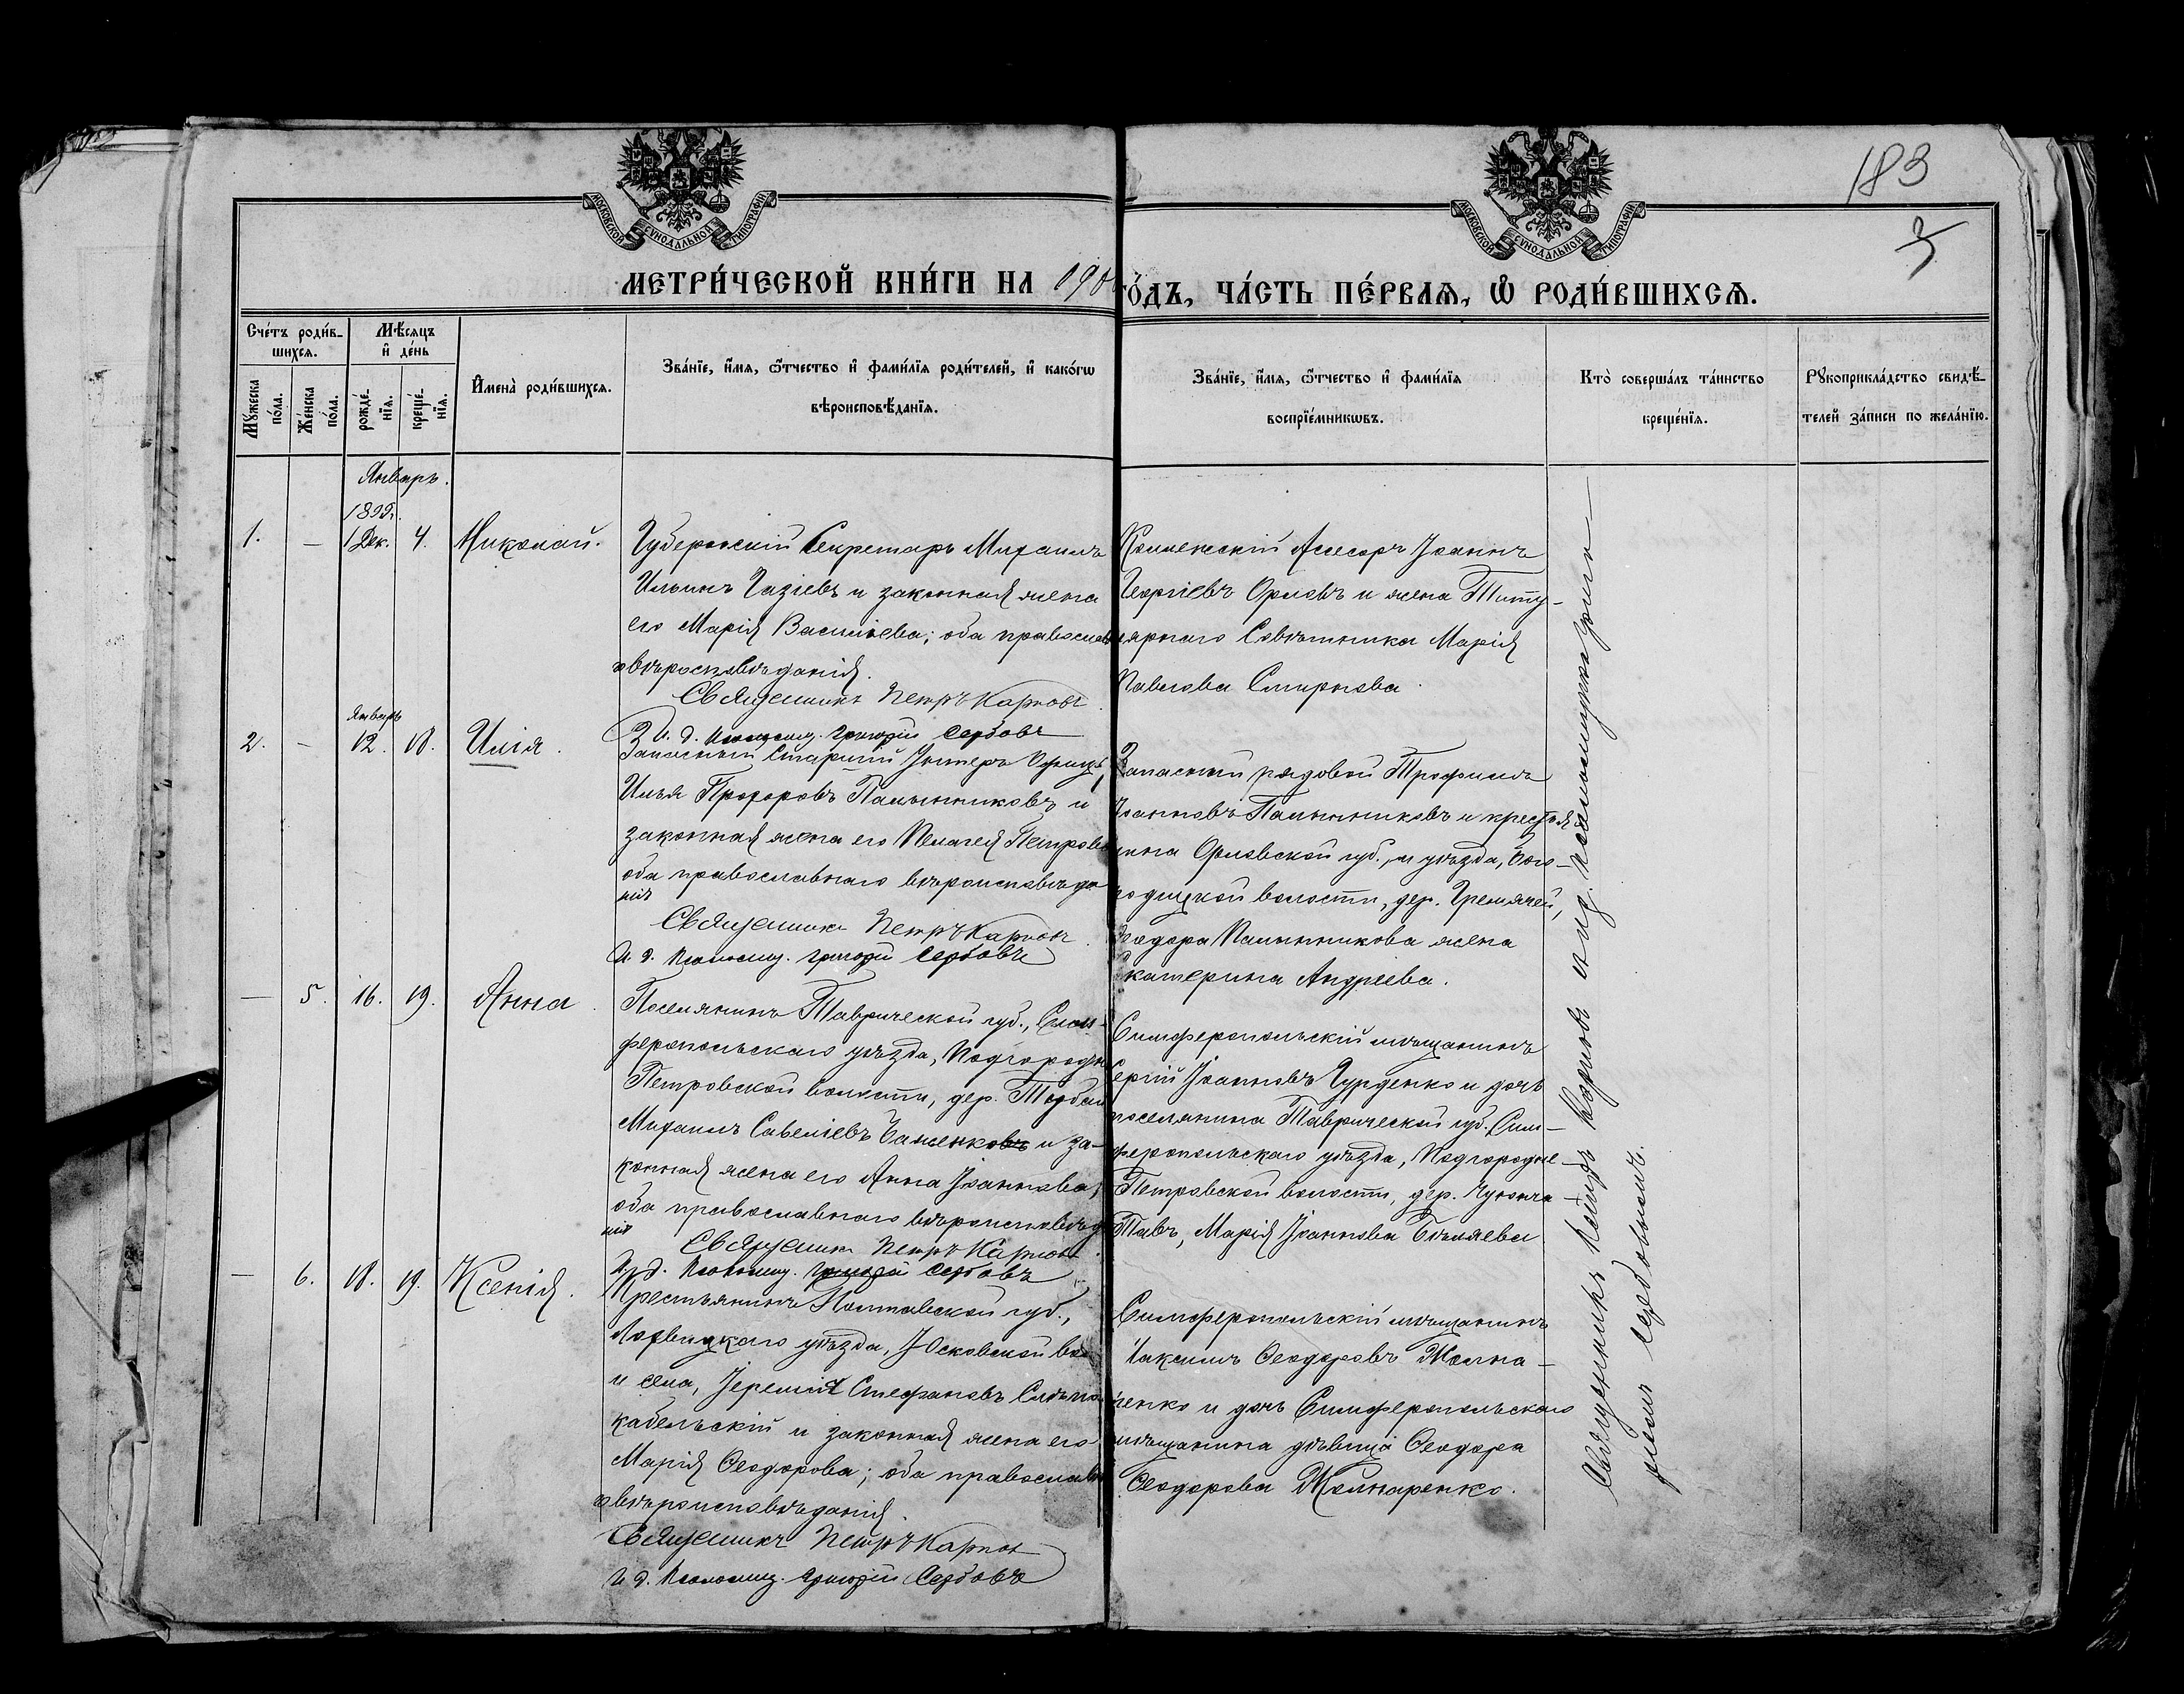 183
3
МОСКОВСКОЙ СУНОДАЛЬНОЙ ТИПОГРАФІИ
МОСКОВСКОЙ СУНОДАЛЬНОЙ ТИПОГРАФІИ
МЕТРИ́ЧЕСКОЙ КНИ́ГИ НА 190
ГО́ДЪ, ЧА́СТЬ ПЕ́РВАѦ, Ѡ҆ РОДИ́ВШИХСѦ.
Сче́тъ роди́в-
шихсѧ.
Мѣ́сяцъ
и҆ де́нь
Мꙋ́жеска
по́ла.
Же́нска
по́ла.
рожде́-
нїѧ.
креще́-
нїѧ.
И҆мена̀ роди́вшихсѧ.
Зва́нїе, и҆́мѧ, ѻ҆́тчество и҆ фами́лїѧ роди́телей, и҆ како́гѡ
вѣроисповѣ́данїѧ.
Зва́нїе, и҆́мѧ, ѻ҆́тчество и҆ фами́лїѧ
воспрїе́мникѡвъ.
Кто̀ соверша́лъ та́инство
креще́нїѧ.
Рꙋкоприкла́дство свидѣ́-
телей за́писи по жела́нїю.
Январь.
1899.
1. — 1 Дек. 4. Николай.
Губернскій Секретарь Михаилъ
Ильинъ Газіевъ и законная жена
его Марія Васильева; оба православна-
го вѣроисповѣданія.
Священникъ Петръ Карповъ
И. д. Псаломщ. Григорій Сербовъ
Коллежскій Ассесоръ Іоаннъ
Георгіевъ Орловъ и жена Титу-
лярнаго Совѣтника Марія
Павлова Смирнова.
Январь
2. — 12. 18. Илія.
Запасный Старшій Унтеръ Офицеръ
Илья Прохоровъ Пальчиковъ и
законная жена его Пелагея Петрова
оба православнаго вѣроисповѣда-
нія
Священникъ Петръ Карповъ
И. д. Псаломщ. Григорій Сербовъ
Запасный рядовой Трофимъ
Іоанновъ и крестья-
нина Орловской губ., и уѣзда, Бого-
родицкой волости, дер. Гремячей,
Ѳеодора жена
Екатерина Андреева.
— 5. 16. 19. Анна.
Поселянинъ Таврической губ., Сим-
феропольскаго уѣзда, Подгородне-
Петровской волости, дер.
Михаилъ Савеліевъ Баженковъ и за-
конная жена его Анна Іоаннова;
оба православнаго вѣроисповѣда-
нія
Священникъ Петръ Карповъ
И. д. Псаломщ. Григорій Сербовъ
Симферопольскій мѣщанинъ
Сергій Іоанновъ Гурденко и дочь
поселянина Таврической губ. Сим-
феропольскаго уѣзда, Подгородне-
Петровской волости, дер. Чуюнча
Марія Іоаннова Бѣляева
— 6. 18. 19. Ксенія.
Крестьянинъ Полтавской губ.,
Лохвицкаго уѣзда, Юсковской вол.
и села, Іеремія Стефановъ
и законная жена его
Марія Ѳеодорова; оба православна-
го вѣроисповѣданія.
Священникъ Петръ Карповъ
И. д. Псаломщ. Григорій Сербовъ
Симферопольскій мѣщанинъ
Максимъ Ѳеодоровъ
и дочь Симферопольскаго
мѣщанина дѣвица Ѳеодора
Ѳеодорова
Священникъ Петръ Карповъ съ и. д. псаломщика Григо-
ріемъ Сербовымъ.